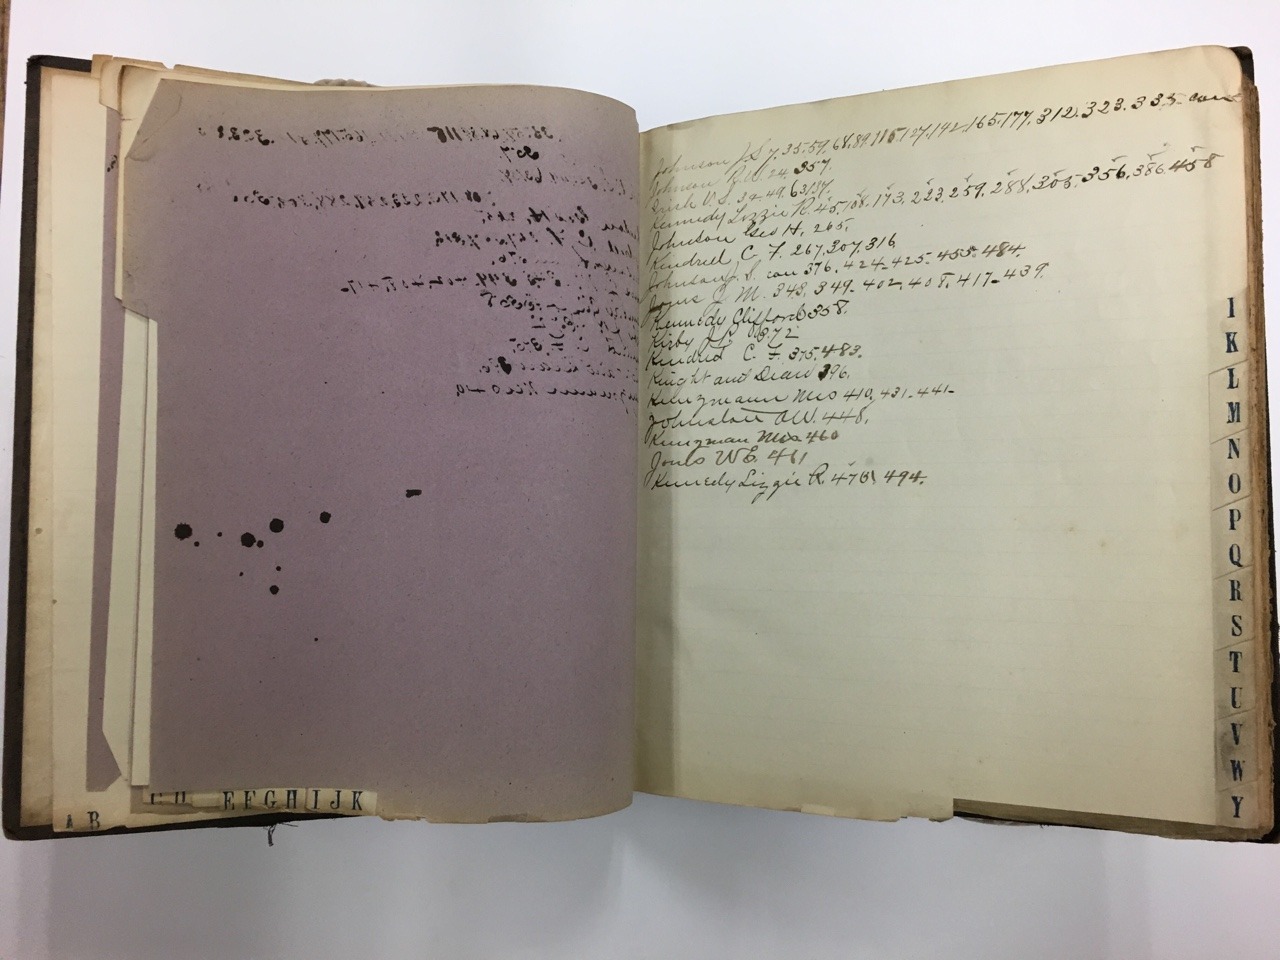 Johnson J.S. 7, 35, 59, 68, 89, 115, 127, 142, 165, 177, 312, 323, 335- con
Johnson R.W. 24, 357.
34, 49, 63, 137.
Kennedy Lizzie R. 45, 108, 173, 223, 259, 288, 305, 356, 386, 458
Johnson Geo H, 265.
Kindred C. F. 267, 307, 316
Johnson J. S. con 376, 424- 425- 455- 484.
Jones J. M. 343, 349- 402, 408, 417- 439.
Kennedy Clifford 358.
Kirby 372
Kindred C. F. 375, 483.
Knight and Dean 396.
Kunzmann Mrs 410, 431- 441-
Johnston A.W. 448,
Kunzman Mrs 460
Jones W E. 461
Kennedy Lizzie R. 476 494.
A B
E F G H I J K
I
K
L
M
N
O
P
Q
R
S
T
U
V
W
Y